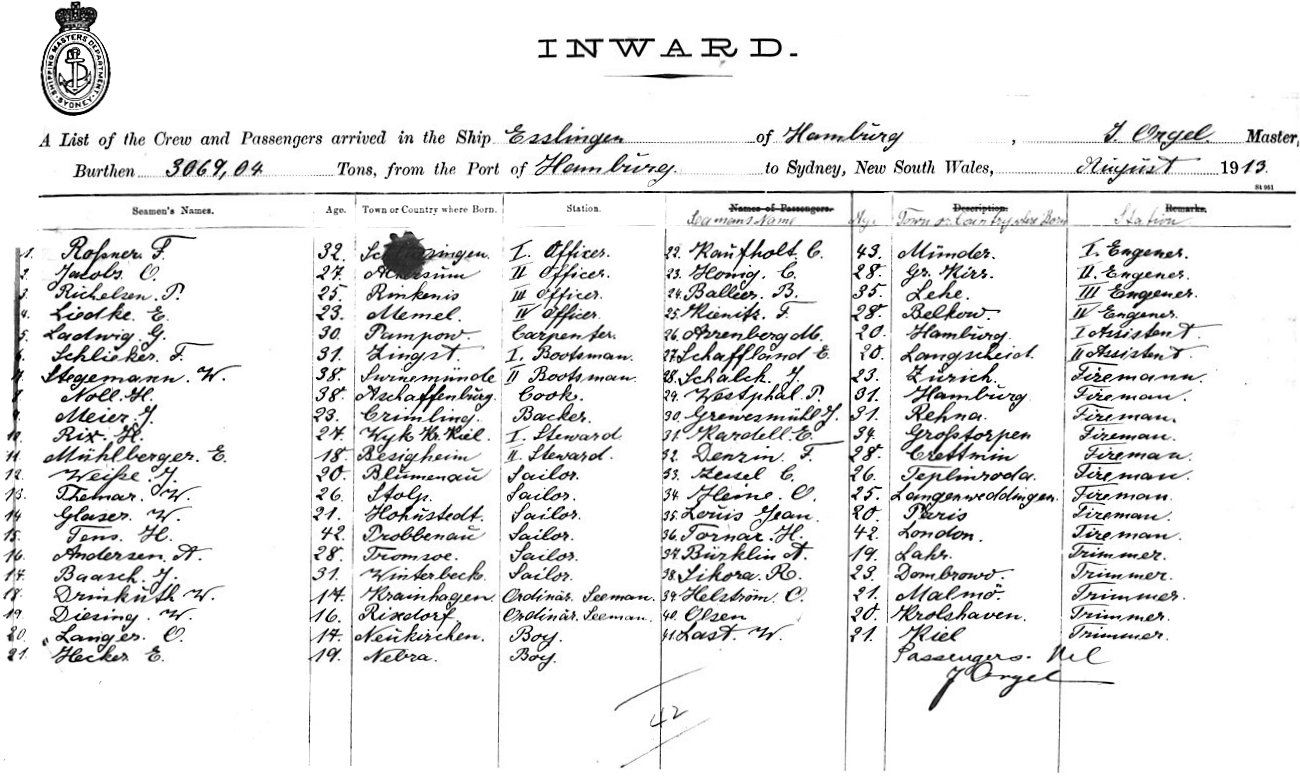 SHIPPING MASTERS DEPARTMENT SYDNEY
INWARD.
A List of the Crew and Passengers arrived in the Ship Esslingen of Hamburg, J. Orgel. Master,
Burthen 3069,04 Tons, from the Port of Hamburg. to Sydney, New South Wales, August 1913.
St 961
Seamen's Names. Age. Town or Country where Born. Station. Names of Passengers. Description. Remarks.
Seamans Name Age Town or Country where Born Station
1. Roßner F. 32. I. Officer. 22. Kaufholt C. 43. Münder. I. Engener.
2. Jacobs O. 27. II Officer. 23. Honig. C. 28. Gr. II. Engener.
3. Richelsen. P. 25. Rinkenis III Officer. 24. Balleer. B. 35. Lehe. III Engener.
4. Liedke E. 23. Memel. IV Officer. 25. Kienitz F. 28. Belkow. IV Engener.
5. Ladwig G. 30. Pampow. Carpenter. 26. Arrenberg M. 20. Hamburg I Assistent.
6. Schlieker F. 31. Zingst I. Bootsman. 27. Schaffland E 20. Langscheid. II Assistent.
7. Stegemann. W. 38. Swinemünde II Bootsman. 28. Schalch. J. 23. Zürich. Firemann.
8. Noll H. 38. Aschaffenburg. Cook. 29. Westphal P. 31. Hamburg Fireman.
9. Meier J. 23. Crimling. Backer. 30. Grewesmühl J. 31. Rehna. Fireman.
10. Rix. H. 27. Wyk Kr. Kiel. I. Steward 31. Kardell E. 34. Großtorpen Fireman.
11. Mühlberger. E. 18. Besigheim II. Steward. 32. Denzin F. 28. Fireman.
12. Weiße. J. 20. Blumenau Sailor. 33. Zessel C. 26. Teplinroda. Fireman.
13. Themar. W. 26. Stolp. Sailor. 34. Heine. O. 25. Langenweddingen. Fireman.
14 Glaser. W. 21. Hohnstedt. Sailor. 35. Louis Jean. 20. Paris Fireman.
15. Tens. H. 42. Drobbenau Sailor. 36. Tornar. H. 42. London. Fireman.
16. Andersen A. 28. Tromsoe. Sailor. 37. Bürklin A. 19. Lahr. Trimmer.
17. Baasch. J. 31. Winterbeck. Sailor. 38. Sikora. R. 23. Dombrowo. Trimmer.
18. Drinkuth W. 17. Krainhagen. Ordinär. Seeman. 39. Helström. O. 21. Malmö. Trimmer.
19. Diesing. W. 16. Rixdorf Ordinär. Seeman. 40. Olsen 20. Krolshaven. Trimmer.
20. Langer. O. 17. Neukirchen. Boy. 41. Last. W. 21. Kiel Trimmer.
21. Hecker E. 19. Nebra. Boy. Passengers. Nil
J Orgel
42